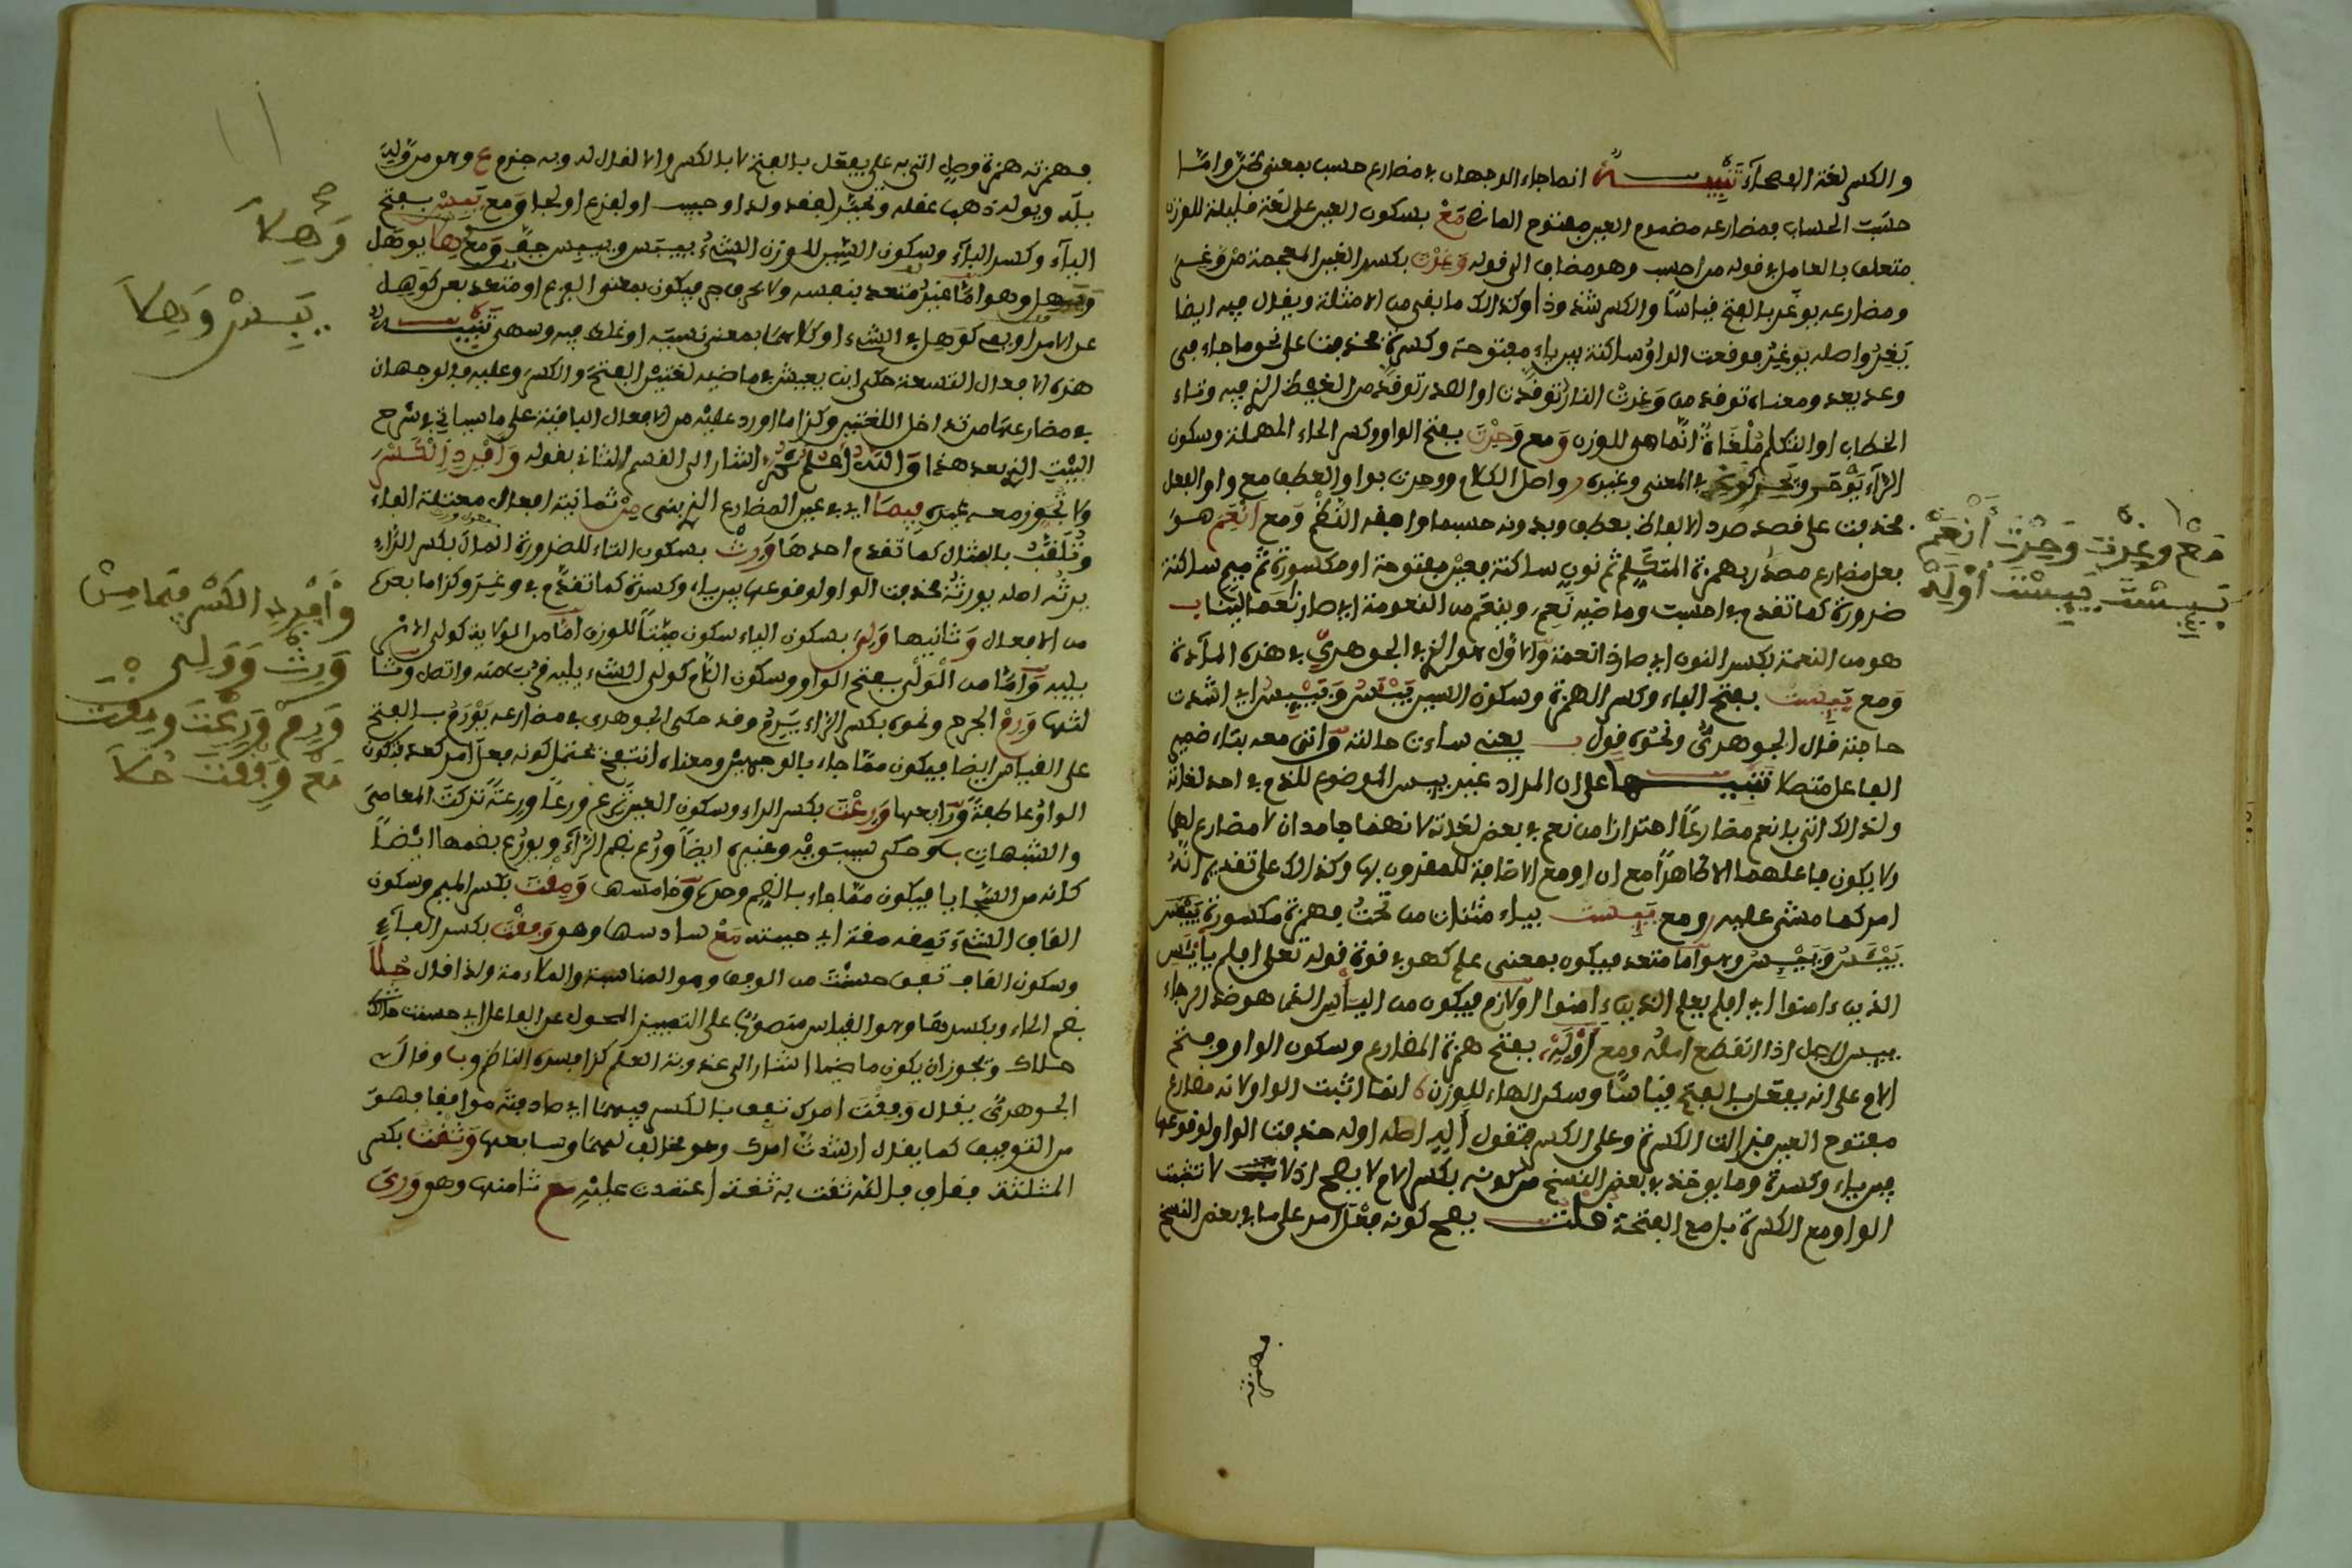 والكسر لغة الفصحآء تنبيه انما جاء الوجهان في مضارع حسب بمعنى ظن واما
حسبت الحساب فمضارعه مضموم العين مفتوح الماضي مع بسكون العين على لغة قليلة للوزن
متعلق بالعامل في قوله من احسب وهو مضاف الى قوله وغرت بكسر الغين المعجمة من وغر
ومضارعه يوغر بالفتح قياسا والكسر شذوذا وكذلك ما بقي من الامثلة ويقال فيه ايضا
يغر واصله يوغر فوقعت الواو ساكنة بين ياء مفتوحة وكسرة فحذفت على نحو ما جاء في
وعد يعد ومعناه توقد من وغرت النار توقدت او الصدر توقد من الغيظ الذي فيه وتاء
الخطاب او التكلم ملغاة انما هي للوزن ومع وحرت بفتح الواو وكسر الحاء المهملة وسكون
الرآء يوحر ويحر كوغر في المعنى وغيره واصل الكلام ووحرت بواو العطف مع واو الفعل
فحذفت على قصد سرد الالفاظ بعطف وبدونه حسبما وافقه النظم ومع انعم هو
فعل مضارع مصدر بهمزة المتكلم ثم نون ساكنة فعين مفتوحة او مكسورة ثم ميم ساكنة
ضرورة كما تقدم في احسب وماضيه نعم وينعم من النعومة اي صار ناعما لينا
هو من النعمة بكسر النون اي صار ذا نعمة والاول هو الذي في الجوهري في هذه المآدة
ومع بئست بفتح الباء وكسر الهمزة وسكون السين يبئس ويبئس اي اشتدت
حاجته قال الجوهري ونحوه قول يعني ساءت حالته واتى معه بتاء ضمير
الفاعل متصلا تنبيها على ان المراد غير بيس الموضوع للذم في احد لغاته
ولذلك اتى بانعم مضارعا احترازا من نعم في بعض لغاته لانهما جامدان لا مضارع لهما
ولا يكون فاعلهما الا ظاهرا مع ال او مع الاضافة للمقرون بها وكذلك على تقديم انه
امر كما مشى عليه ومع يئست بياء مثناة من تحت فهمزة مكسورة ييئس
ييئس وييئس وهو اما متعد فيكون بمعنى علم كهو في قوة قوله تعلى افلم يايئس
الذين ءامنوا اي افلم يعلم الذين ءامنوا او لازم فيكون من الياس الذي هو ضد الرجاء
ييس الرجل اذا انقطع امله ومع اوله بفتح همزة المضارع وسكون الواو وفتح
اللام على انه يفعل بالفتح قياسا وسكن الهاء للوزن انما اثبت الواو لانه مضارع
مفتوح العين فزالت الكسرة وعلى الكسر فتقول اله اصله اوله حذفت الواو لوقوعها
بين ياء وكسرة وما يوخذ في بعض النسخ من كونه بكسر اللام لا يصح اذ لا تثبت
الواو مع الكسرة بل مع الفتحة قلت يصح كونه فعل امر على ما في بعض النسخ
فهمزته
مع وغرت وحرت انعم
بئست يئست اوله
فهمزته همزة وصل اتى به على يفعل بالفتح لا بالكسر والا لقال له وبه جزم ع وهو من وله
يله ويوله ذهب عقله وتحير لفقد ولد او حبيب او لفزع او لجا ومع يبس بفتح
اليآء وكسر البآء وسكون السين للوزن الشيء ييبس وييبس جف ومع وهلا يوهل
ويهل وهو اما غير متعد بنفسه ولا بحرف جر فيكون بمعنى الفزع او متعد بعن كوهل
عن الامر او بفي كوهل في الشيء او كلاهما بمعنى نسيه او غلط فيه وسهى تنبيه
هذه الافعال التسعة حكى ابن يعيش في ماضيه لغتين الفتح والكسر وعليه فالوجهان
في مضارعها من تداخل اللغتين وكذا ما اورد عليه من الافعال الباقية على ما سياتي في شرح
البيت الذي بعد هذا والله اعلم ثم اشار الى القسم الثاني بقوله وافرد الكسر
ولا تجوز معه غيره فيما اي في عين المضارع الذي بني من ثمانية افعال معتلة الفاء
وتلقب بالمثال كما تقدم احدها ورث بسكون الثاء للضرورة المال بكسر الراء
يرثه اصله يورثه فحذفت الواو لوقوعها بين ياء وكسرة كما تقدم في وغر وكذا ما بعده
من الافعال وثانيها ولي بسكون الياء سكون ميتا للوزن اما من الولاية كولي الامر
يليه واما من الولي بفتح الواو وسكون اللام كولي الشيء يليه قرب منه واتصل وثا
لثها ورم الجرح ونحوه بكسر الراء يرم وقد حكى الجوهري في مضارعه يورم بالفتح
على القياس ايضا فيكون مما جاء بالوجهين ومعناه انتفخ يحتمل كونه فعل امر كعد فتكون
الواو عاطفة ورابعها ورعت بكسر الراء وسكون العين ترع ورعا ورعة تركت المعاصي
والشبهات وحكى سيبويه وغيره ايضا ورع بضم الرآء ويورع بضمها ايضا
كانه من السجايا فيكون مما جاء بالضم وحده وخامسها ومقت بكسر الميم وسكون
القاف الشيء تمقه مقة اي حببته مع سادسها وهو وفقت بكسر الفآء
وسكون القاف تفق حسنت من الوفق وهو المناسبة والملاءمة ولذا قال حلا
بضم الحاء وبكسر وهو القياس منصوبا على التمييز المحول عن الفاعل اي حسنت
حلاك وتجوز ان يكون ماضيا اشار الى عذوبة العلم كذا فسره الناظم وقال
الجوهري يقال وفقت امرك تفق بالكسر فيهما اي صادفته موافقا فهو
من التوفيق كما يقال ارشدت امرك وهو مخالف لهما وسابعها وثقت بكسر
المثلثة فقاف بالله ثقت به ثقة اعتمدت عليه مع ثامنها وهو وري
وهلا
يبس وهلا
وافرد الكسر فيما من
ورث وولي
ورم ورعت ومقت
مع وفقت حلا